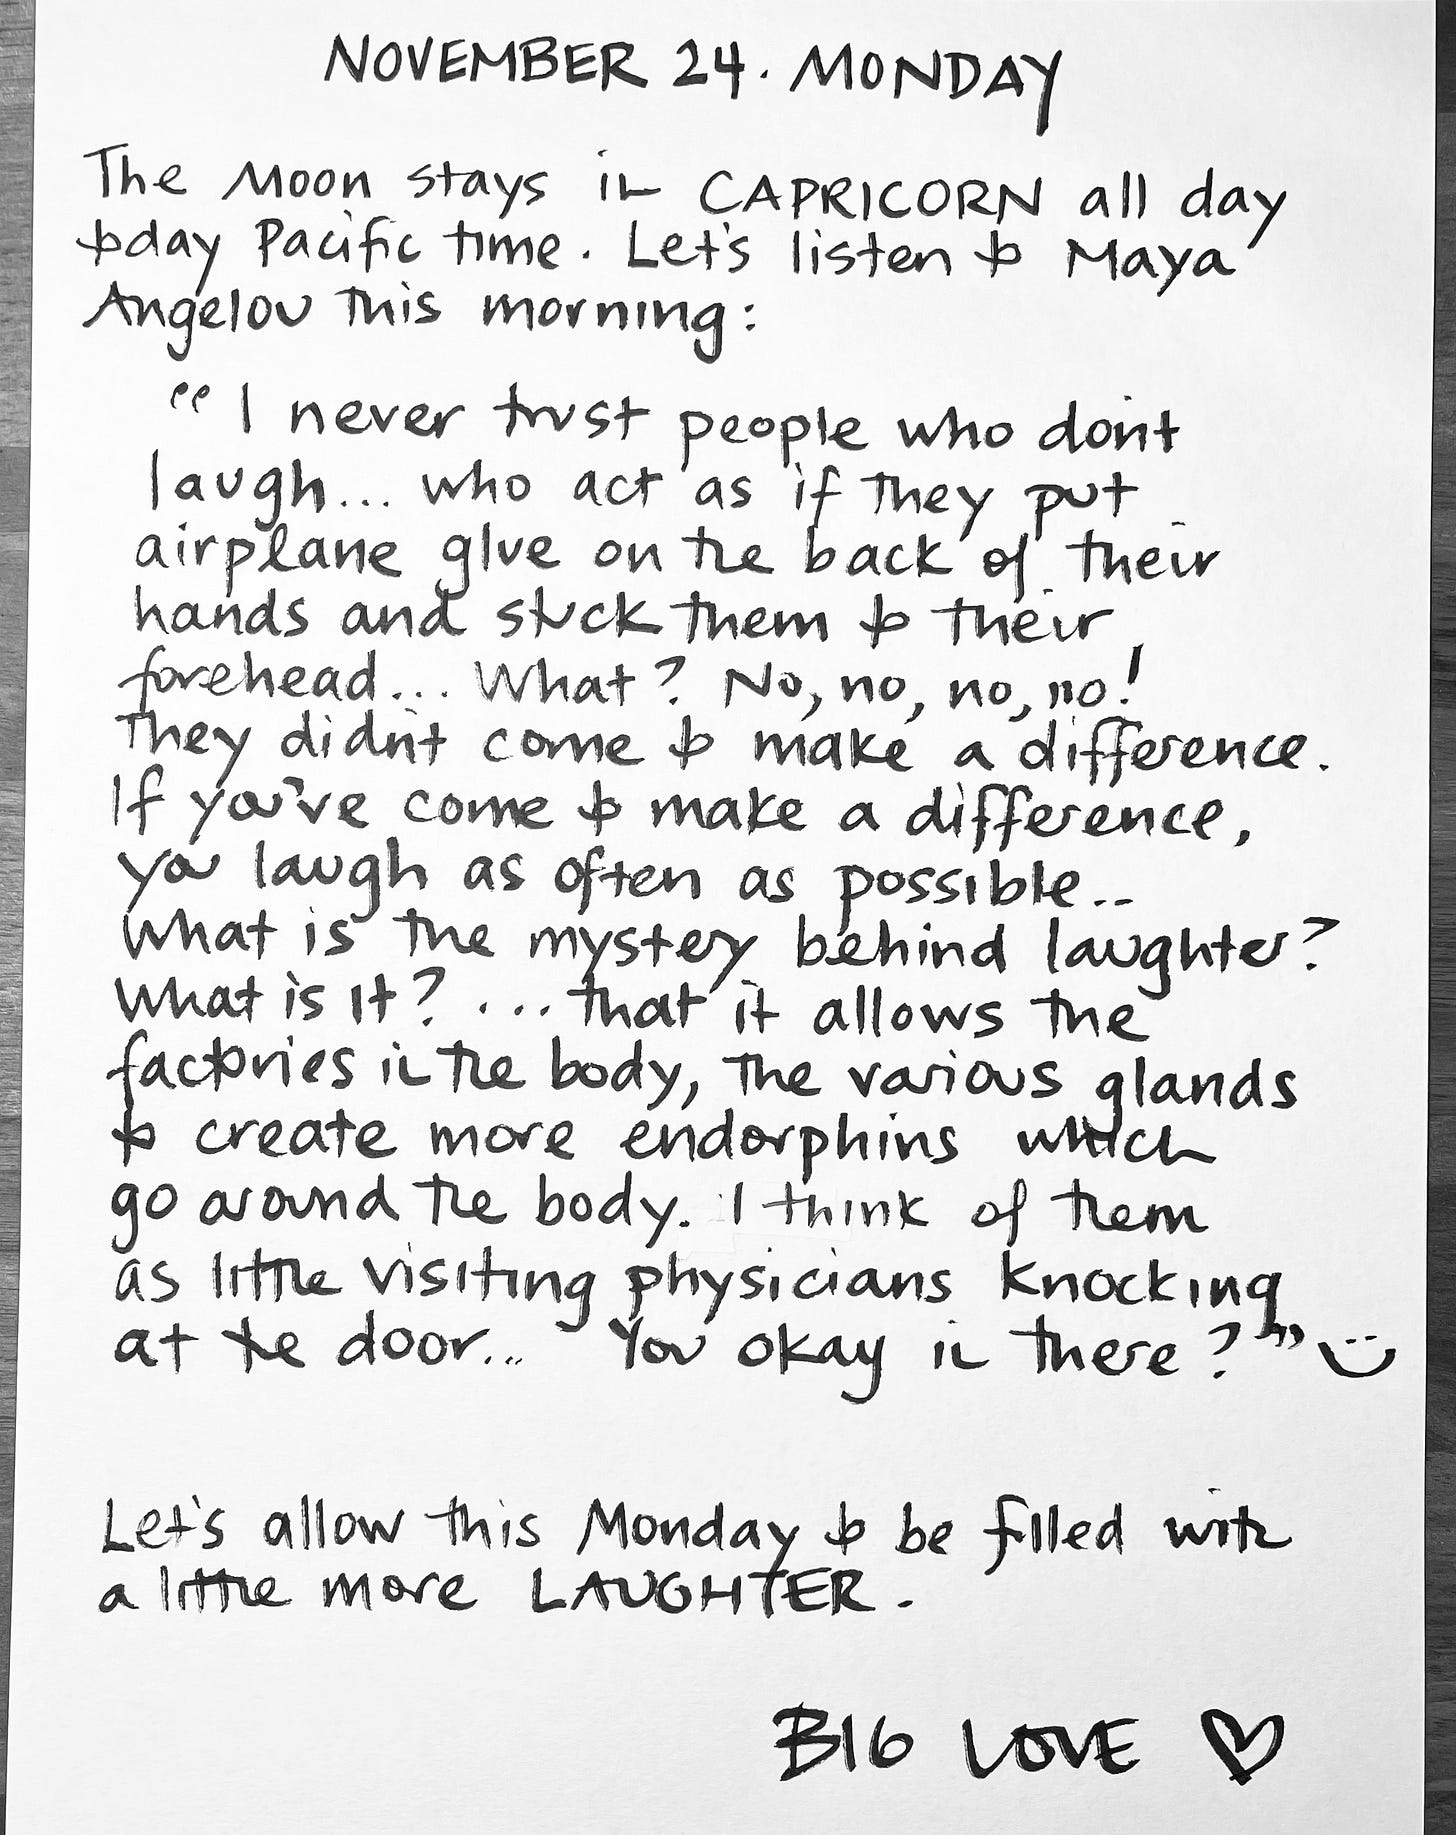 NOVEMBER 24. MONDAY
The Moon stays in CAPRICORN all day
today Pacific time. Let's listen to Maya
Angelou this morning:
"I never trust people who don't
laugh... who act as if they put
airplane glue on the back of their
hands and stuck them to their
forehead... What? No, no, no, no!
They didn't come to make a difference.
If you've come to make a difference,
you laugh as often as possible..
What is the mystery behind laughter?
What is it? ... that it allows the
factories in the body, the various glands
to create more endorphins which
go around the body. I think of them
as little visiting physicians knocking
at the door... You okay in there?"
Let's allow this Monday to be filled with
a little more LAUGHTER.
BIG LOVE